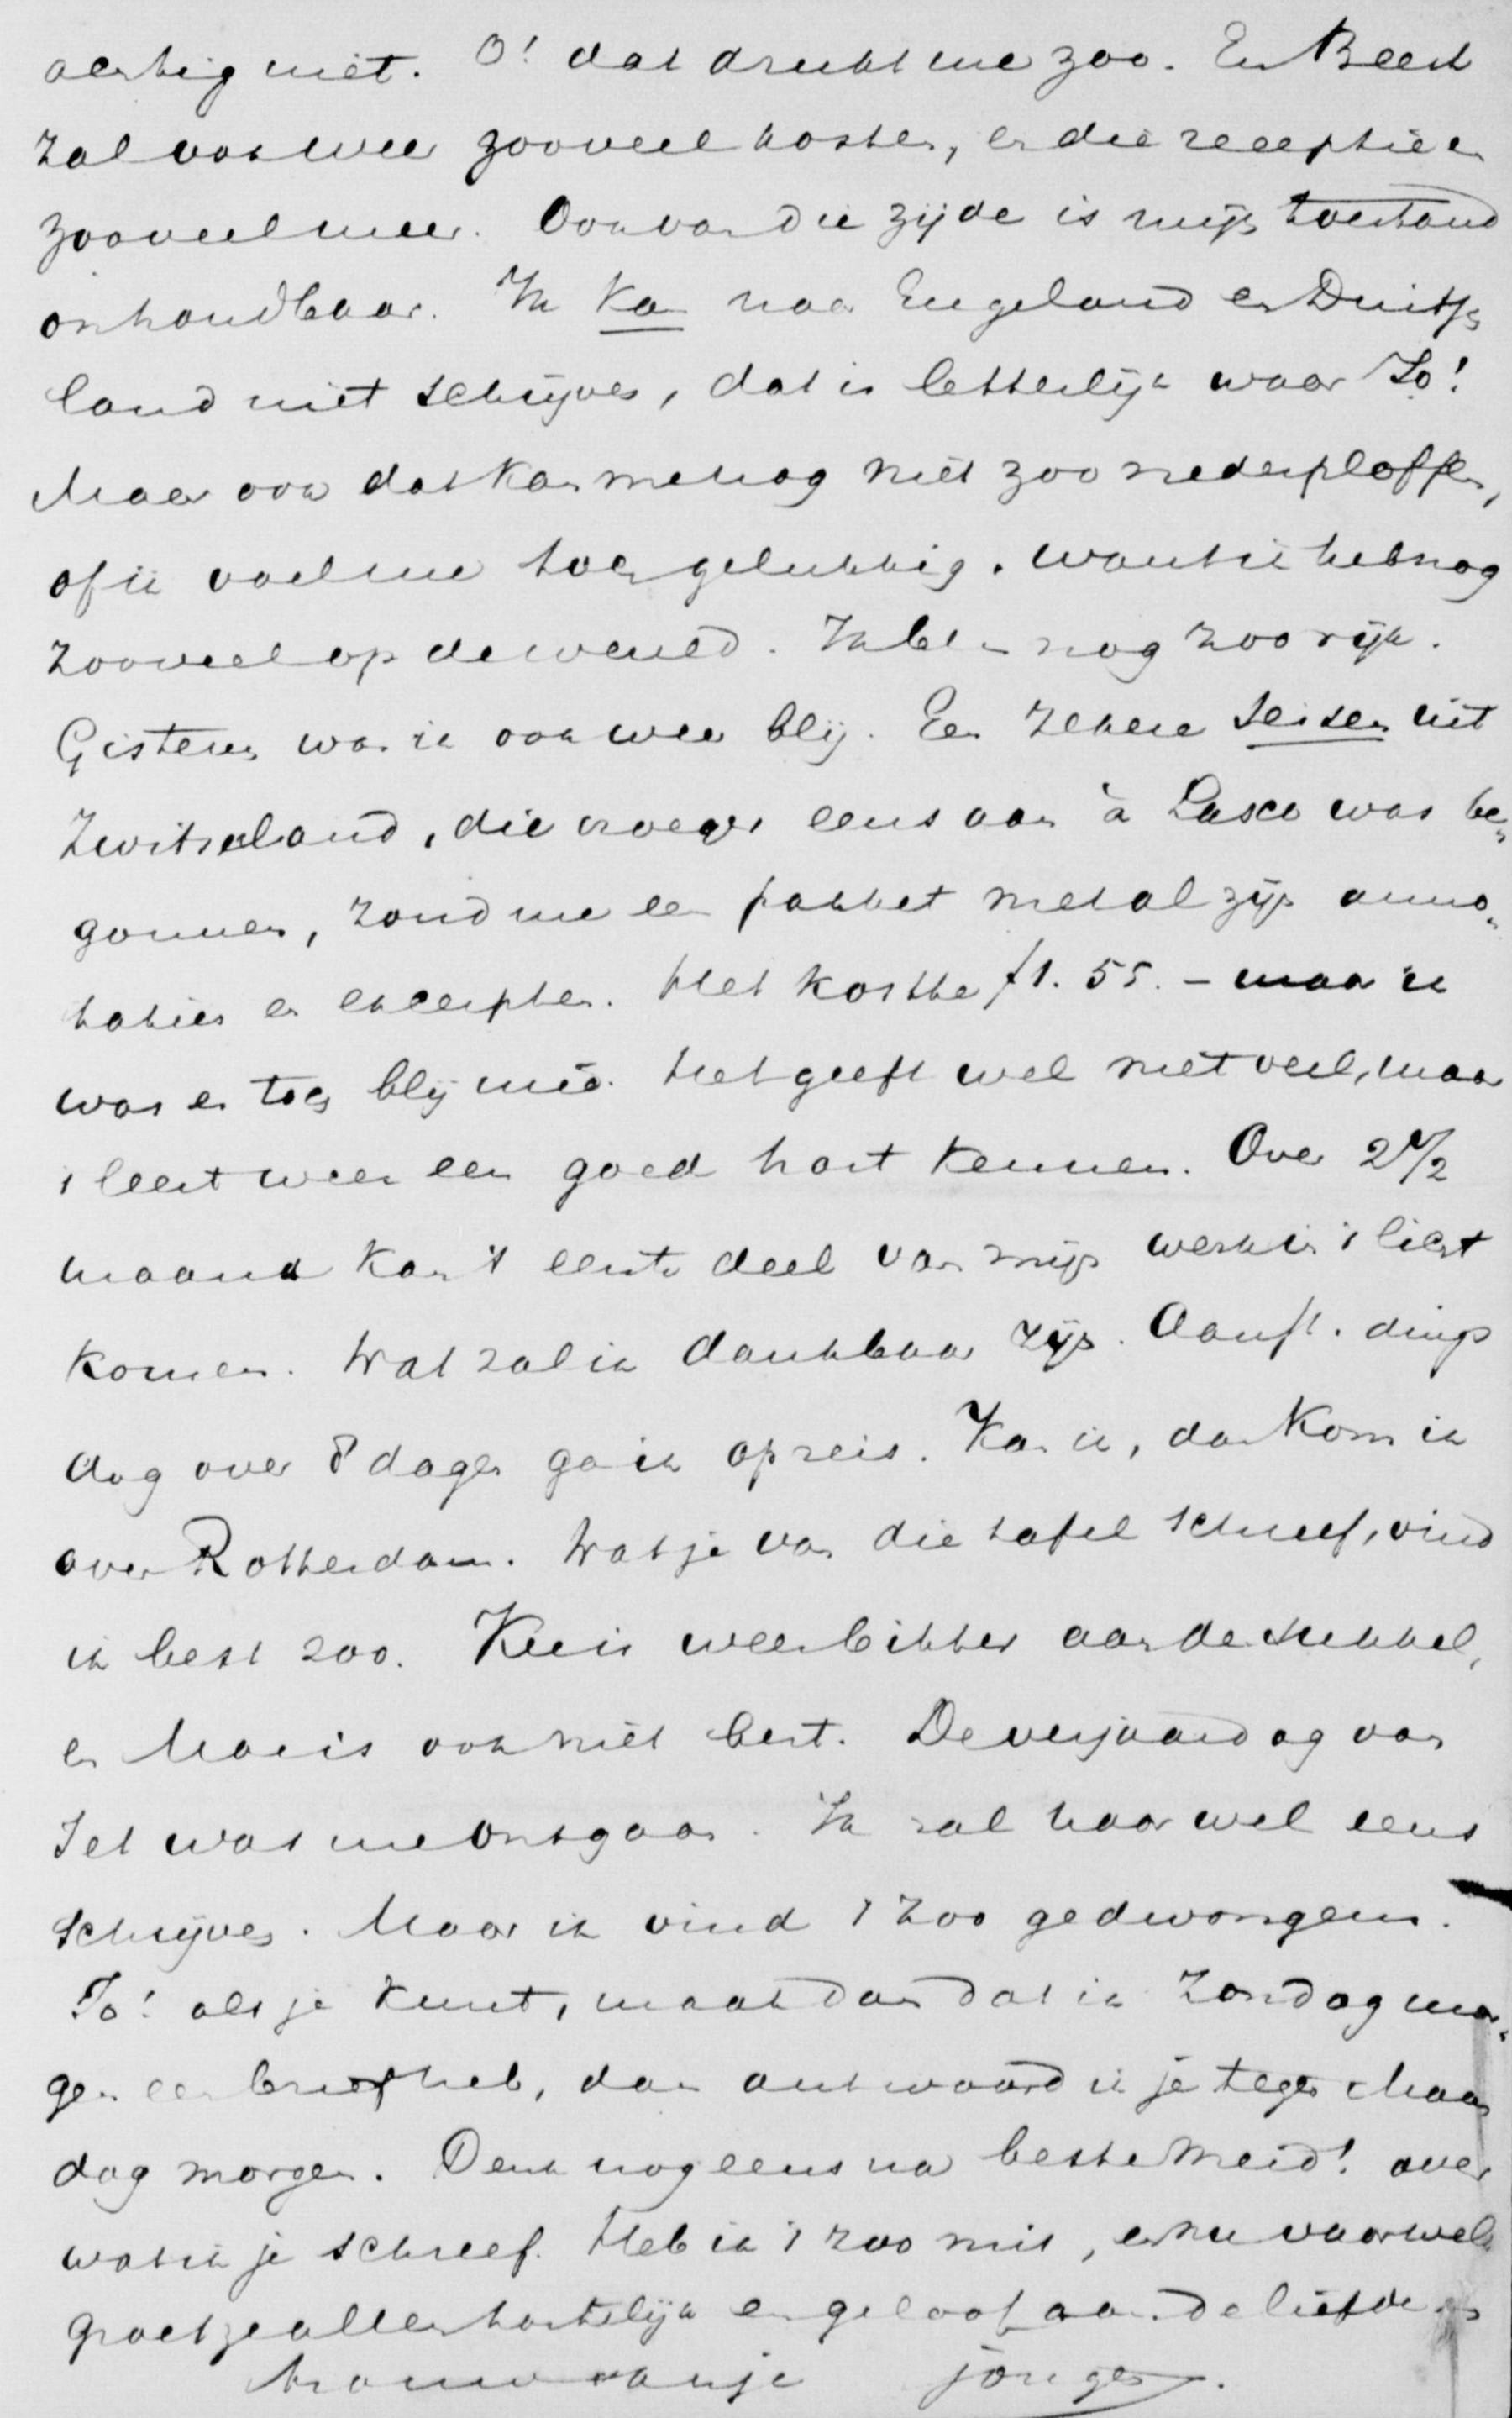 aertig niet. O! dat drukt me zoo. En Beest
zal ook weer zooveel kosten, en die receptie en
zooveel meer. Ook van die zijde is mijn toestand
onhoudbaar. Ik kan naar Engeland en Duitsch
land niet schrijven, dat is letterlijk waar Jo!
Maar ook dat kan me nog niet zoo nederploffen,
of ik voel me toch gelukkig. want ik heb nog
zooveel op de wereld. Ik ben nog zoo rijk.
Gisteren was ik ook weer blij. Een zekere Seisen uit
Zwitserland, die vroeger eens aan à Lasco was be-
gonnen, zond me een pakket met al zijn anno-
taties en excerpten. Het kostte f 1.55. - maar ik
was er toch blij meê. Het geeft wel niet veel, maar
't leert weer een goed hart kennen. Over 2 1/2
maand kan 't eerste deel van mijn werk in 't licht
komen. Wat zal ik dankbaar zijn. Aanst. dings
dag over 8 dagen ga ik op reis. Kan ik, dan kom ik
over Rotterdam. Wat je van die tafel schreef, vind
ik best zoo. Kee is weer bitter aan de sukkel,
en Ma is ook niet best. De verjaardag van
Jet was me ontgaan. Ik zal haar wel eens
schrijven. Maar ik vind 't zoo gedwongen.
Jo! als je kunt, maak dan dat ik Zondag mor-
gen een brief heb, dan antwoord ik je tegen Maan
dag morgen. Denk nog eens na beste meid! over
wat ik je schreef. Heb ik 't zoo mis, en nu vaarwel
groet ze allen hartelijk en geloof aan de liefde en
trouw van je jongen.